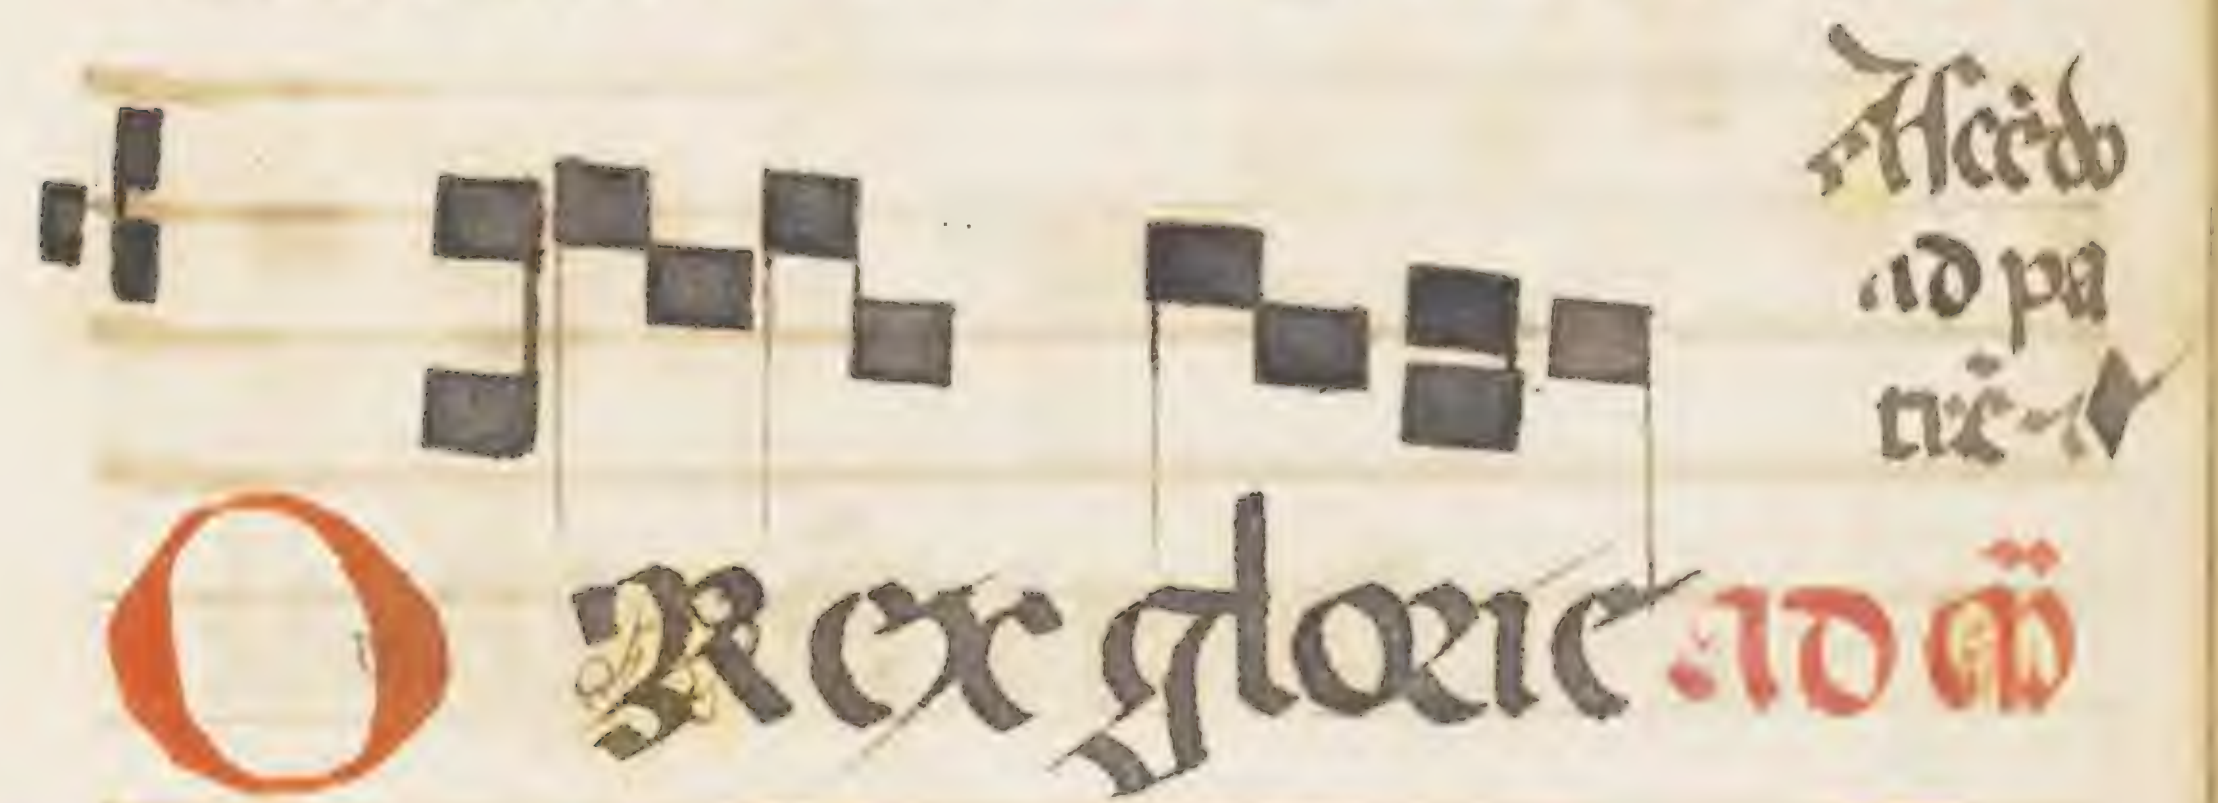 Ascẽdo
ad pa
trẽ
O Rex glorie ad m̃